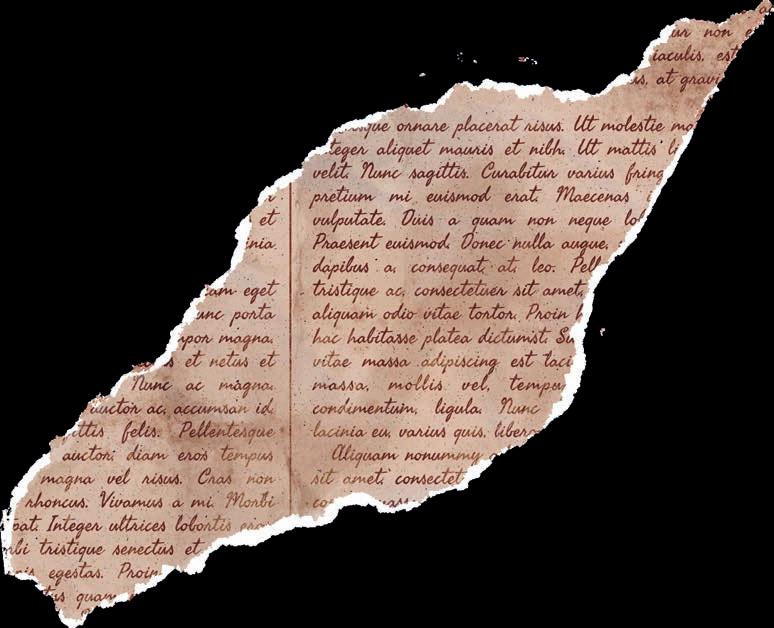 et
eget
porta
magna.
et netus et
Nunc ac magna.
auctor ac, accumsan id,
felis. Pellentesque
auctor, diam eros tempus
magna vel risus. Cras non
rhoncus. Vivamus a mi. Morbi
Integer ultrices lobortis eros
tristique senectus et
egestas. Proin
quam
non
iaculis, est
at gravi
ornare placerat risus. Ut molestie ma
teger aliquet mauris et nibh. Ut mattis li
velit. Nunc sagittis. Curabitur varius fring
pretium mi euismod erat. Maecenas
vulputate. Duis a quam non neque lo
Praesent euismod. Donec nulla augue,
dapibus a, consequat at, leo. Pell
tristique ac, consectetuer sit amet,
aliquam odio vitae tortor. Proin
hac habitasse platea dictumst. Su
vitae massa adipiscing est laci
massa, mollis vel, tempu
condimentum, ligula. Nunc
lacinia eu, varius quis, libero
Aliquam nonummy a
sit amet, consectet